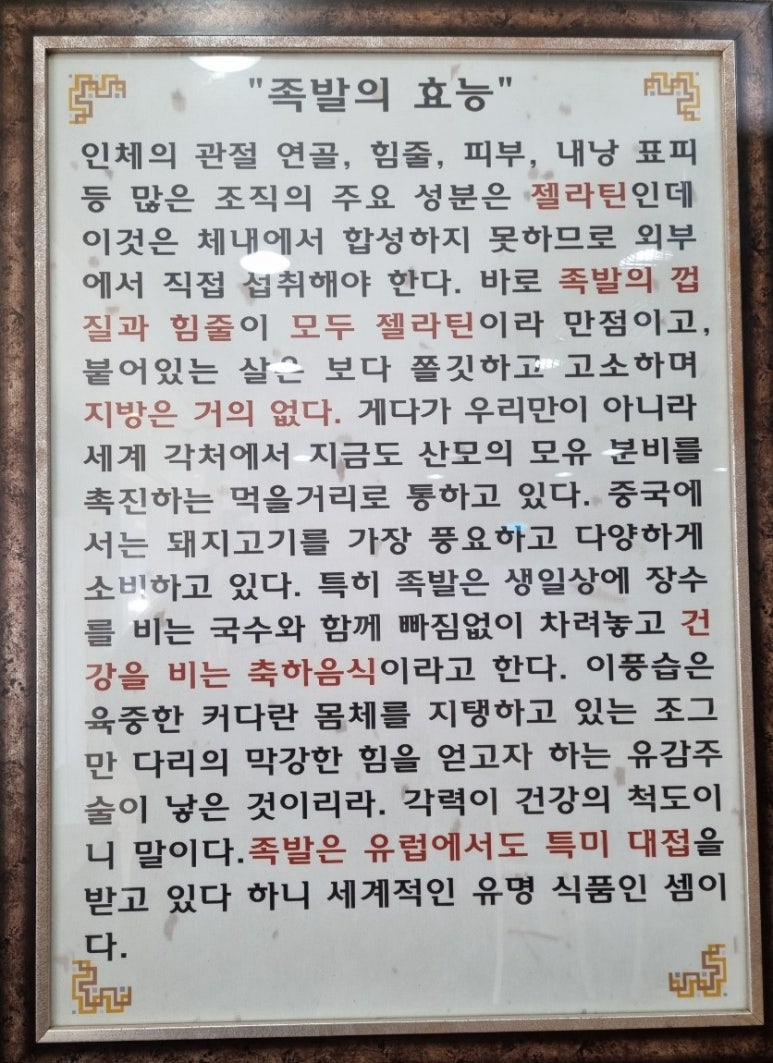 "족발의 효능"
인체의 관절 연골, 힘줄, 피부, 내낭 표피
등 많은 조직의 주요 성분은 젤라틴인데
이것은 체내에서 합성하지 못하므로 외부
에서 직접 섭취해야 한다. 바로 족발의 껍
질과 힘줄이 모두 젤라틴이라 만점이고,
붙어있는 살은 보다 쫄깃하고 고소하며
지방은 거의 없다. 게다가 우리만이 아니라
세계 각처에서 지금도 산모의 모유 분비를
촉진하는 먹을거리로 통하고 있다. 중국에
서는 돼지고기를 가장 풍요하고 다양하게
소비하고 있다. 특히 족발은 생일상에 장수
를 비는 국수와 함께 빠짐없이 차려놓고 건
강을 비는 축하음식이라고 한다. 이풍습은
육중한 커다란 몸체를 지탱하고 있는 조그
만 다리의 막강한 힘을 얻고자 하는 유감주
술이 낳은 것이리라. 각력이 건강의 척도이
니 말이다.족발은 유럽에서도 특미 대접을
받고 있다 하니 세계적인 유명 식품인 셈이
다.